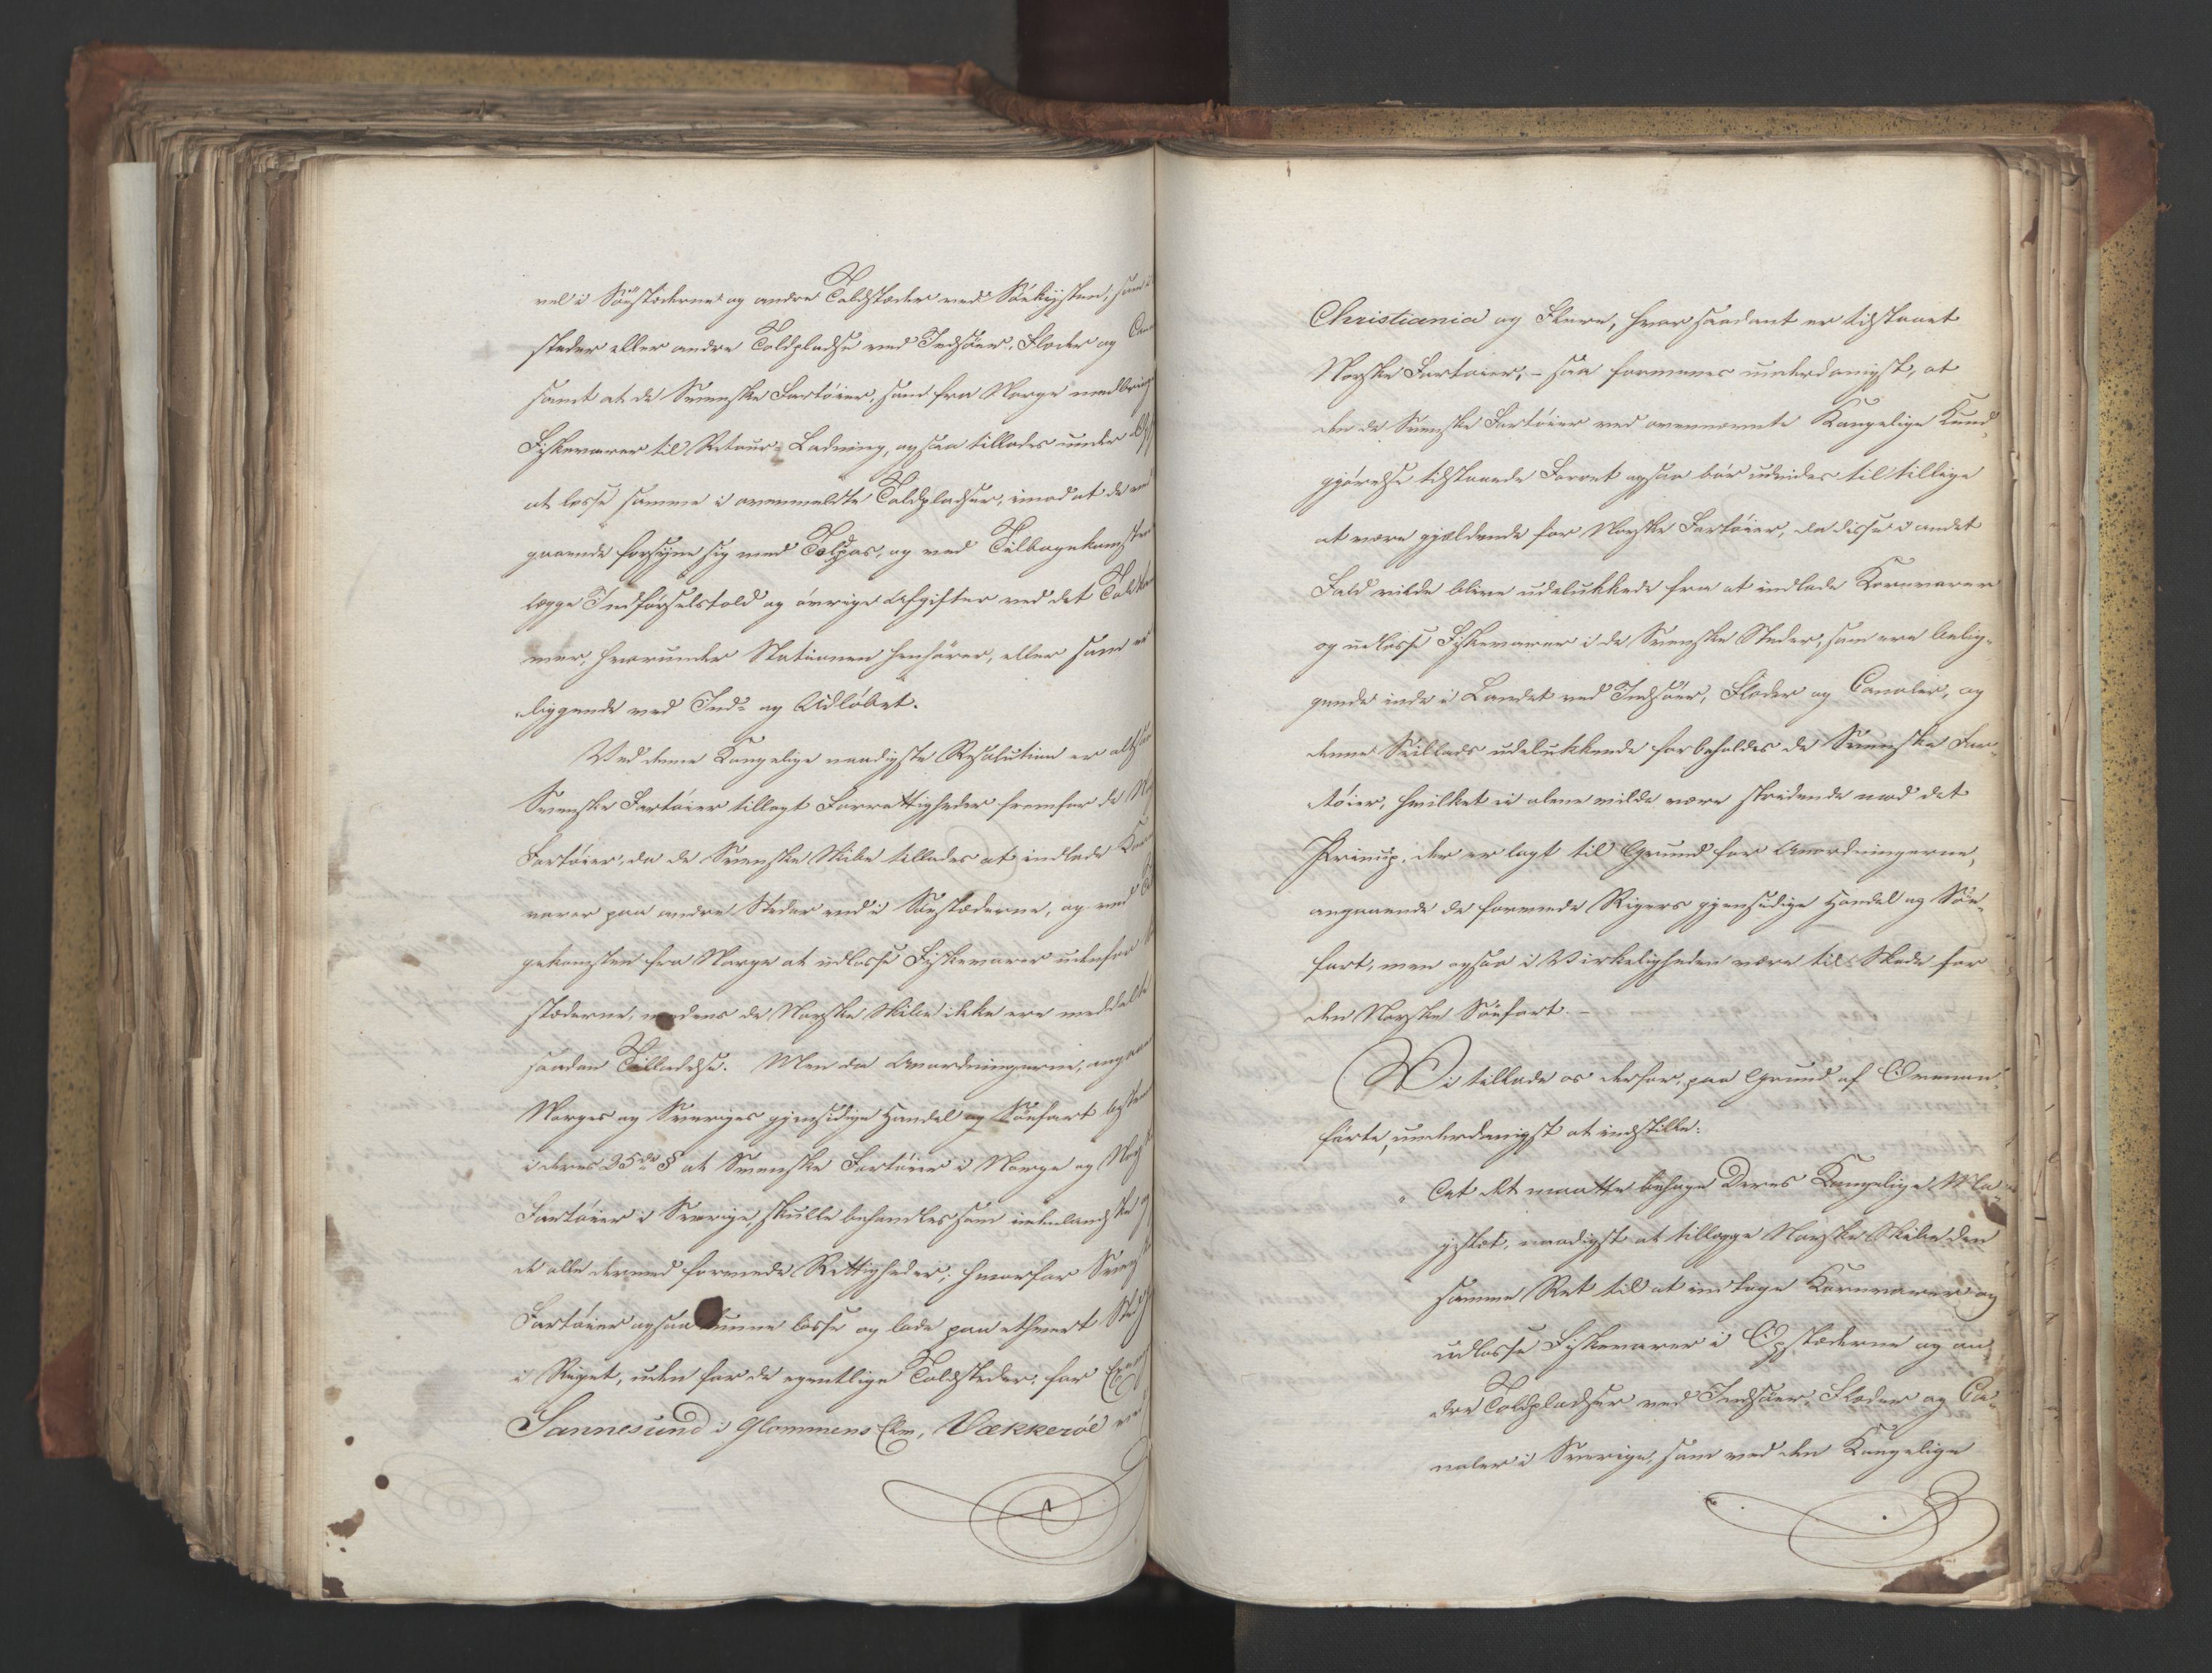 vel i Söestæderne og andre Toldstæder ved Söekysten, som i
steder eller andre Toldpladse ved Indsöer, Floder og
samt at de Svenske Fartöier, som fra Norge medbringe
Fiskevarer til Retour-Ladning, ogsaa tillades under
at losse samme i ovenmeldte Toldpladser, imod at de ved
gaaende forsyne sig med Tolpas, og ved Tilbagekomsten
lægge Indförselstold og övrige Afgifter ved det Told
mer, hvorunder Stationen henhörer, eller som er
liggende ved Ind- og Udlöbet.
Ved denne Kongelige naadigste Resolution er altsaa
Svenske Fartöier tillagt Forrettigheder fremfor de
Fartöier, da de Svenske Skibe tillades at indlade Korn
varer paa andre Steder end i Söestæderne, og ved
gekomsten fra Norge at udlosse Fiskevarer udenfor
stæderne, medens de Norske Skibe ikke ere meddeelte
saadan Tilladelse. Men da Anordningerne, angaaende
Norges og Sveriges gjensidige Handel og Söefart
i deres 25de § at Svenske Fartöier i Norge og Norske
Fartöier i Sverige, skulle behandles som indenlandske og
de alle dermed forenede Rettigheder; hvorfor Svenske
Fartöier ogsaa kunne losse og lade paa ethvert Sted
i Riget, uden for de egentlige Toldsteder, for Exempel
Sannesund i Glommens Elv, Vækkeröe ved
Christiania og Flere, hvor saadant er tilstaaet
Norske Fartoier; - saa formenes underdanigst, at
den de Svenske Fartöier ved ovennævnte Kongelige Kund-
gjörelse tilstaaede Forret ogsaa bör udvides til tillige
at være gjældende for Norske Fartöier, da disse i andet
Fald vilde blive udelukkede fra at indlade Kornvarer
og udlosse Fiskevarer i de Svenske Steder, som ere belig-
gende inde i Landet ved Indsöer, Floder og Canaler, og
denne Seilads udelukkende forbeholdes de Svenske Far-
töier, hvilket ei alene vilde være stridende mod det
Princip, der er lagt til Grund for Anordningerne,
angaaende de forenede Rigers gjensidige Handel og Söe-
fart, men ogsaa i Virkeligheden være til Skade for
den Norske Söefart. -
Vi tillade os derfor, paa Grund af Ovenan-
förte, underdanigst at indstille:
" At det maatte behage Deres Kongelige Ma-
jestæt, naadigst at tillægge Norske Skibe den
samme Ret til at indtage Kornvarer og
udlosse Fiskevarer i Opstæderne og an-
dre Toldpladser ved Indsöer, Floder og Ca-
naler i Sverige, som ved den Kongelige